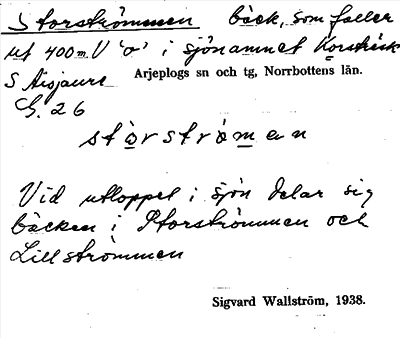 Storströmmen bäck, som faller
ut 400 m. V 'o' i sjönamnet
S Aisjaure Arjeplogs sn och tg, Norrbottens län.
G. 26
storströmen
Vid utloppet i sjön delar sig
bäcken i Storströmmen och
Lillströmmen
Sigvard Wallström, 1938.